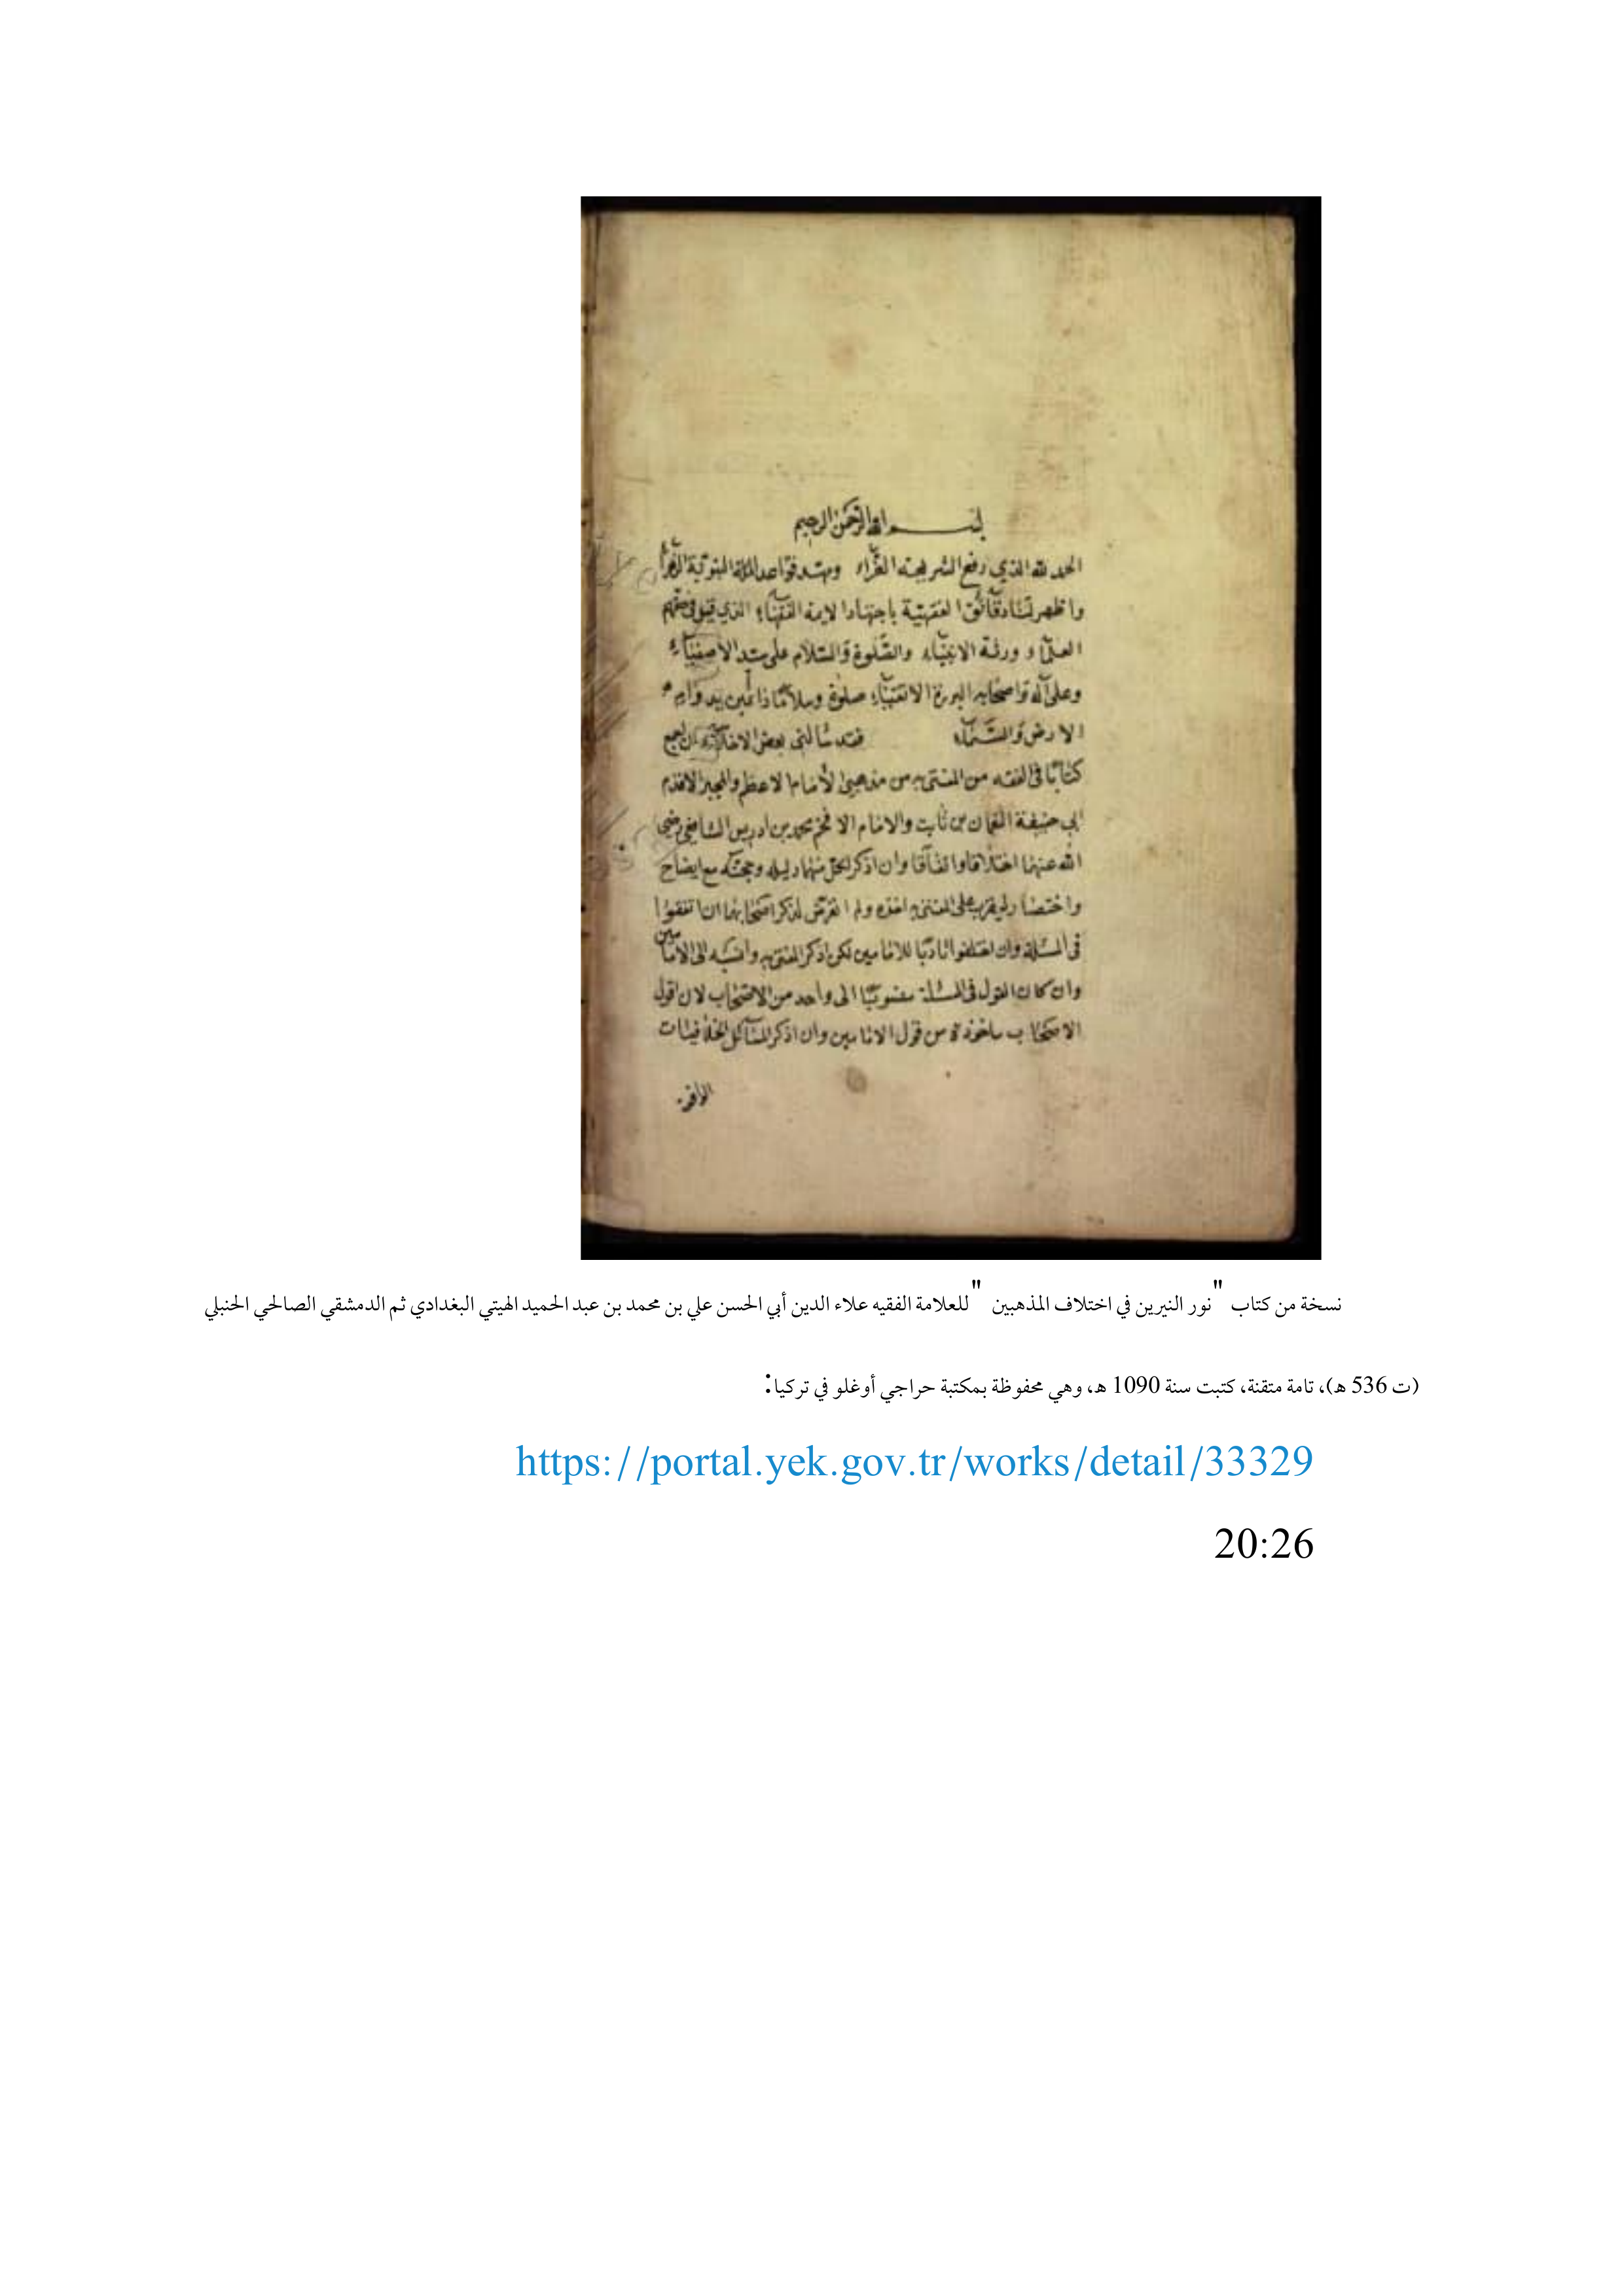 بسم الله الرحمن الرحيم
الحمد لله الذي رفع الشريعة الغراء ومهد قواعد الملة النبوية الزهراء
واظهر لنا دقائق الفقهية باجتهاد الايمة الفقهاء الذي قيل في حقهم
العلماء ورثة الانبياء والصلوة والسلام على سند الاصفياء
وعلى آله واصحابه البررة الاتقياء صلوة وسلاما دائمين بدوام
الارض والسماء فقد سألني بعض ان اجمع
كتابا في الفقه من المفتى به من مذهبي الامام الاعظم والاقدم
ابي حنيفة النعمان بن ثابت والامام الافخم محمد بن ادريس الشافعي رضي
الله عنهما اختلافا واتفاقا وان اذكر لكل منهما دليله وحجته مع ايضاح
واختصار ليقرب على المفتى اخذه ولم اتعرض لذكر اصحابهما ان اتفقوا
في المسئلة وان اختلفوا تادبا للامامين لكن اذكر المفتى به وانسبه الى الامامين
وان كان القول في المسئلة منسوبا الى واحد من الاصحاب لان اقول
الاصحاب ماخوذة من قول الامامين وان اذكر المسائل الخلافيات
نسخة من كتاب "نور النيرين في اختلاف المذهبين" للعلامة الفقيه علاء الدين أبي الحسن علي بن محمد بن عبد الحميد الهيتي البغدادي ثم الدمشقي الصالحي الحنبلي
(ت 536 هـ)، تامة متقنة، كتبت سنة 1090 هـ، وهي محفوظة بمكتبة حراجي أوغلو في تركيا:
https://portal.yek.gov.tr/works/detail/33329
20:26